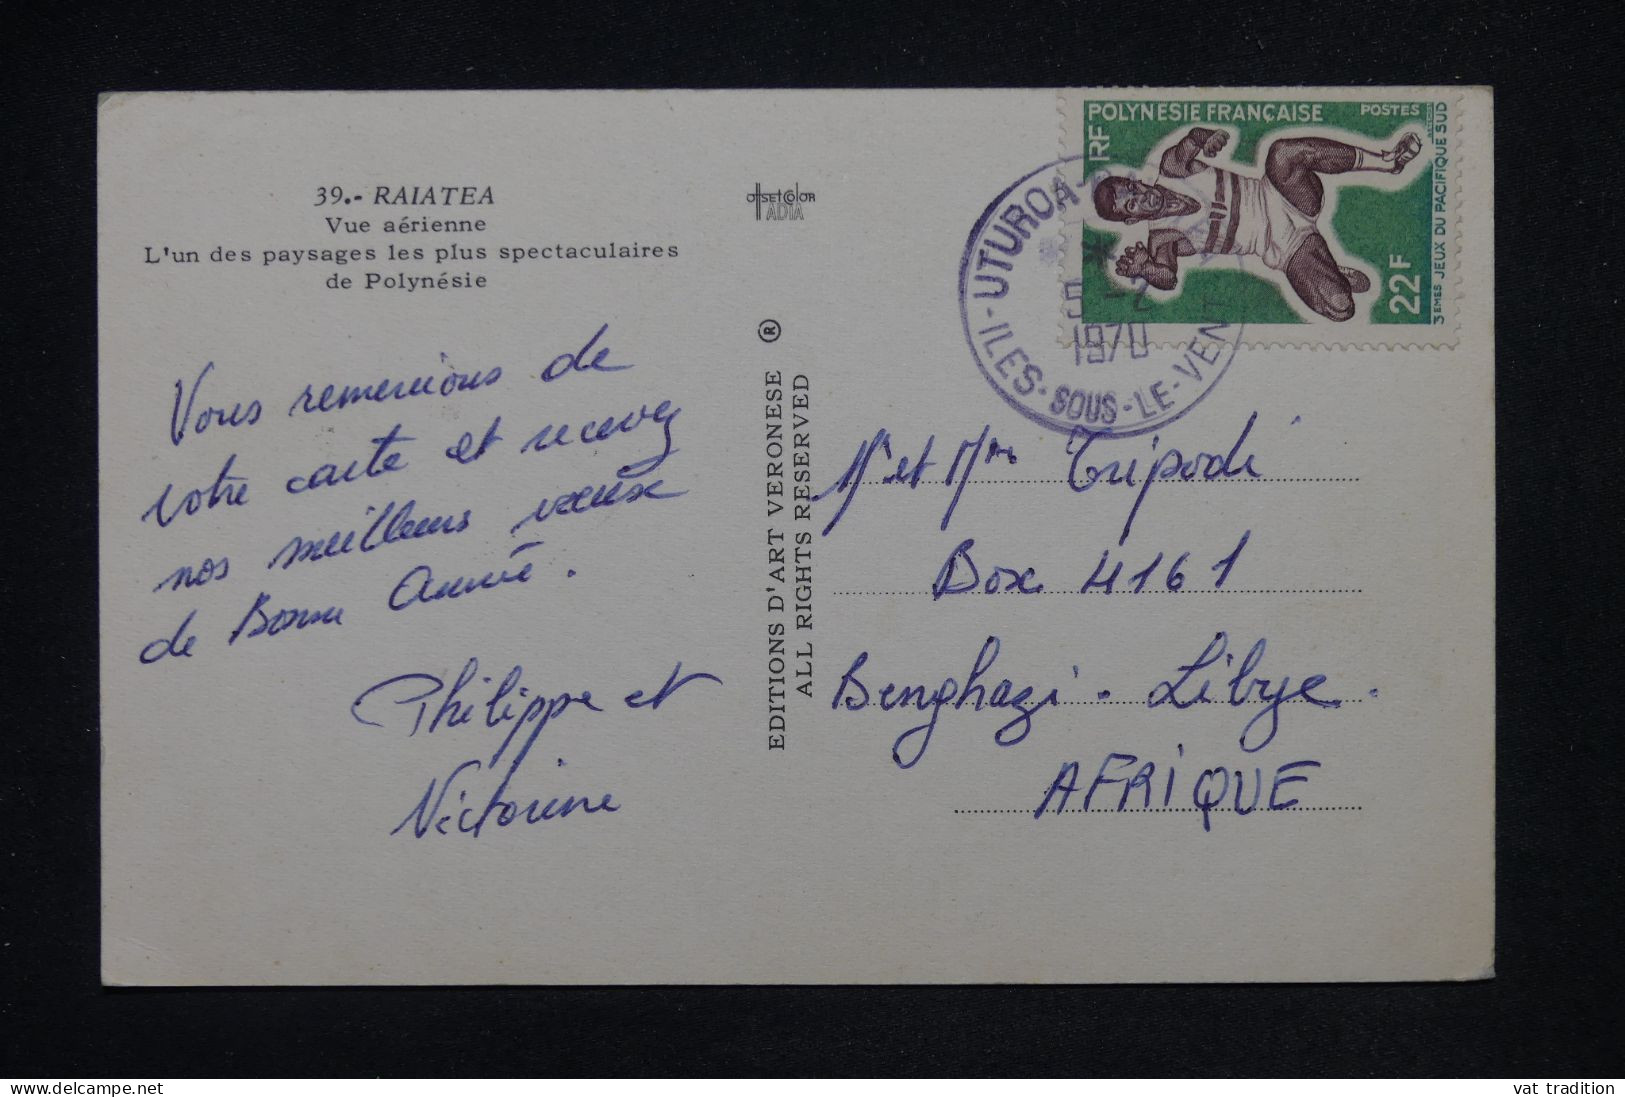 39.- RAIATEA
Vue aérienne
L'un des paysages les plus spectaculaires
de Polynésie
OffsetColor
ADIA
Vous remercions de
votre carte et recevez
nos meilleurs vœux
de Bonne Année.
Philippe et
Victorine
EDITIONS D'ART VERONESE ®
ALL RIGHTS RESERVED
POLYNESIE FRANÇAISE POSTES
RF
22F
3EMES JEUX DU PACIFIQUE SUD
UTUROA
5 -2
1970
ILES-SOUS-LE-VENT
Mr et Mme Tripodi
Box 4161
Benghazi - Libye.
AFRIQUE
vat tradition